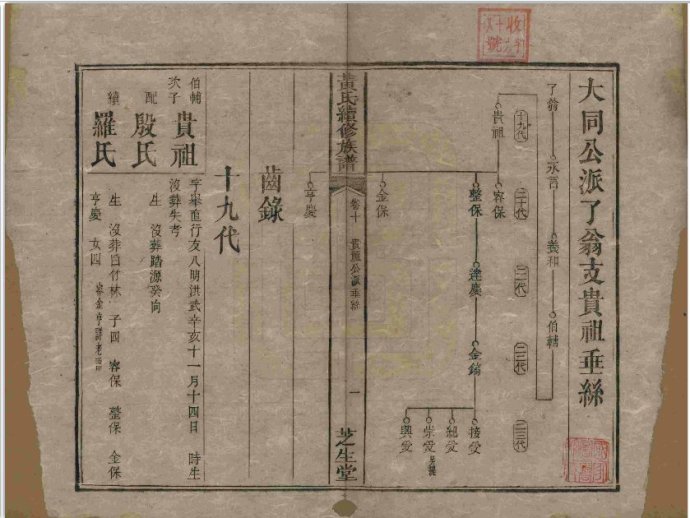 大同公派了翁支貴祖垂絲
了翁
永言
義和
伯輔
十九代
二十代
二一代
二二代
二三代
貴祖
容保
整保
逢慶
金鎬
接愛
愛
崇愛
興愛
金保
亨慶
黃氏續修族譜
卷十
貴祖公派垂絲
一
芝生堂
齒錄
十九代
伯輔次子
貴祖
亨舉直行亥八明洪武辛亥十一月十四日 時生
沒葬失考
配
殷氏
生 沒葬踏源癸向
續
羅氏
生 沒葬呂竹林 子四 容保 整保 金保
亨慶 女四